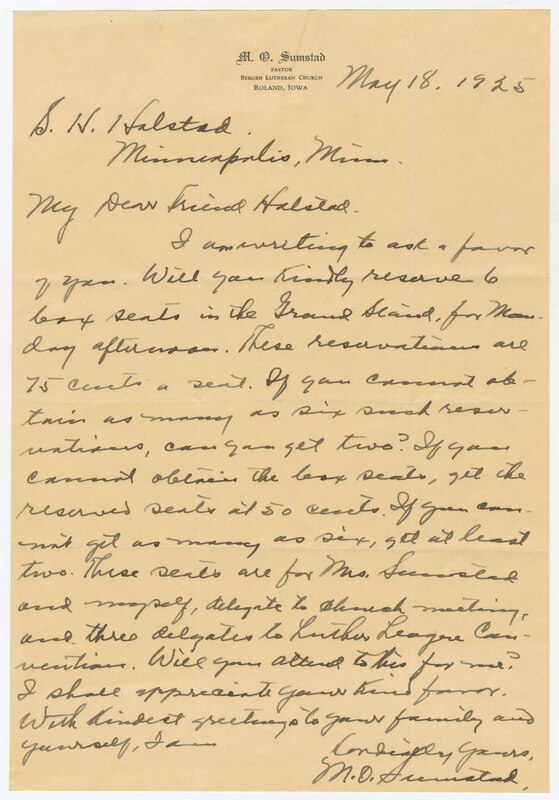 M. O. Sumstad
PASTOR
BERGEN LUTHERAN CHURCH
ROLAND, IOWA
May 18. 1925
S. H. Holstad.
Minneapolis, Minn.
My Dear Friend Holstad.
I am writing to ask a favor
of you. Will you kindly reserve 6
box seats in the Grand Stand, for Mon-
day afternoon. These reservations are
75 cents a seat. If you cannot ob-
tain as many as six such reser-
vations, can you get two? If you
cannot obtain the box seats, get the
reserved seats at 50 cents. If you can-
not get as many as six, get at least
two. These seats are for Mrs. Sumstad
and myself, delegate to church meeting,
and three delgates to Luther League Con-
vention. Will you attend to this for me?
I shall appreciate your kind favor.
With kindest greetings to your family and
yourself, I am
Cordially yours,
M. O. Sumstad.